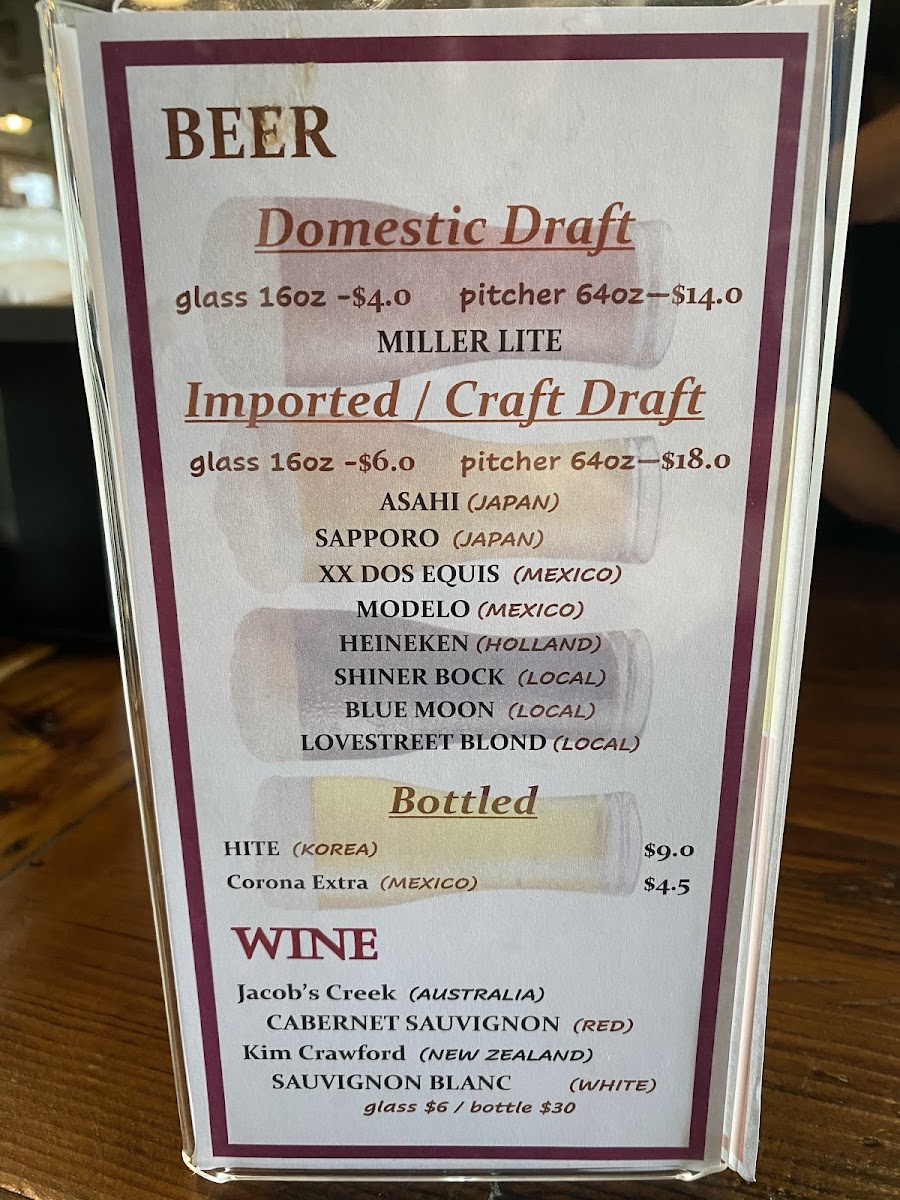 BEER
Domestic Draft
glass 16oz -$4.0 pitcher 64oz—$14.0
MILLER LITE
Imported / Craft Draft
glass 16oz -$6.0 pitcher 64oz—$18.0
ASAHI (JAPAN)
SAPPORO (JAPAN)
XX DOS EQUIS (MEXICO)
MODELO (MEXICO)
HEINEKEN (HOLLAND)
SHINER BOCK (LOCAL)
BLUE MOON (LOCAL)
LOVESTREET BLOND (LOCAL)
Bottled
HITE (KOREA) $9.0
Corona Extra (MEXICO) $4.5
WINE
Jacob's Creek (AUSTRALIA)
CABERNET SAUVIGNON (RED)
Kim Crawford (NEW ZEALAND)
SAUVIGNON BLANC (WHITE)
glass $6 / bottle $30